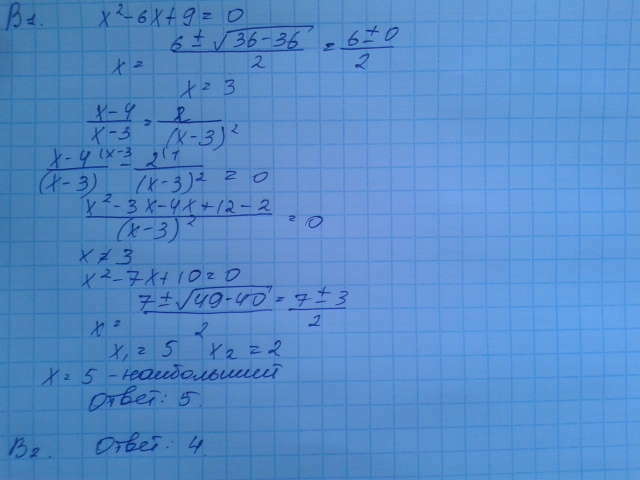 B1. x²-6x+9=0
x = (6 ± √(36-36))/2 = (6±0)/2
x = 3
(x-4)/(x-3) = 2/(x-3)²
(x-4 (x-3)/(x-3) - 2(1/(x-3)² = 0
(x²-3x-4x+12-2)/(x-3)² = 0
x ≠ 3
x²-7x+10=0
x = (7±√(49-40))/2 = (7±3)/2
x₁ = 5 x₂ = 2
x = 5 - наибольший
Ответ: 5.
B2. Ответ: 4